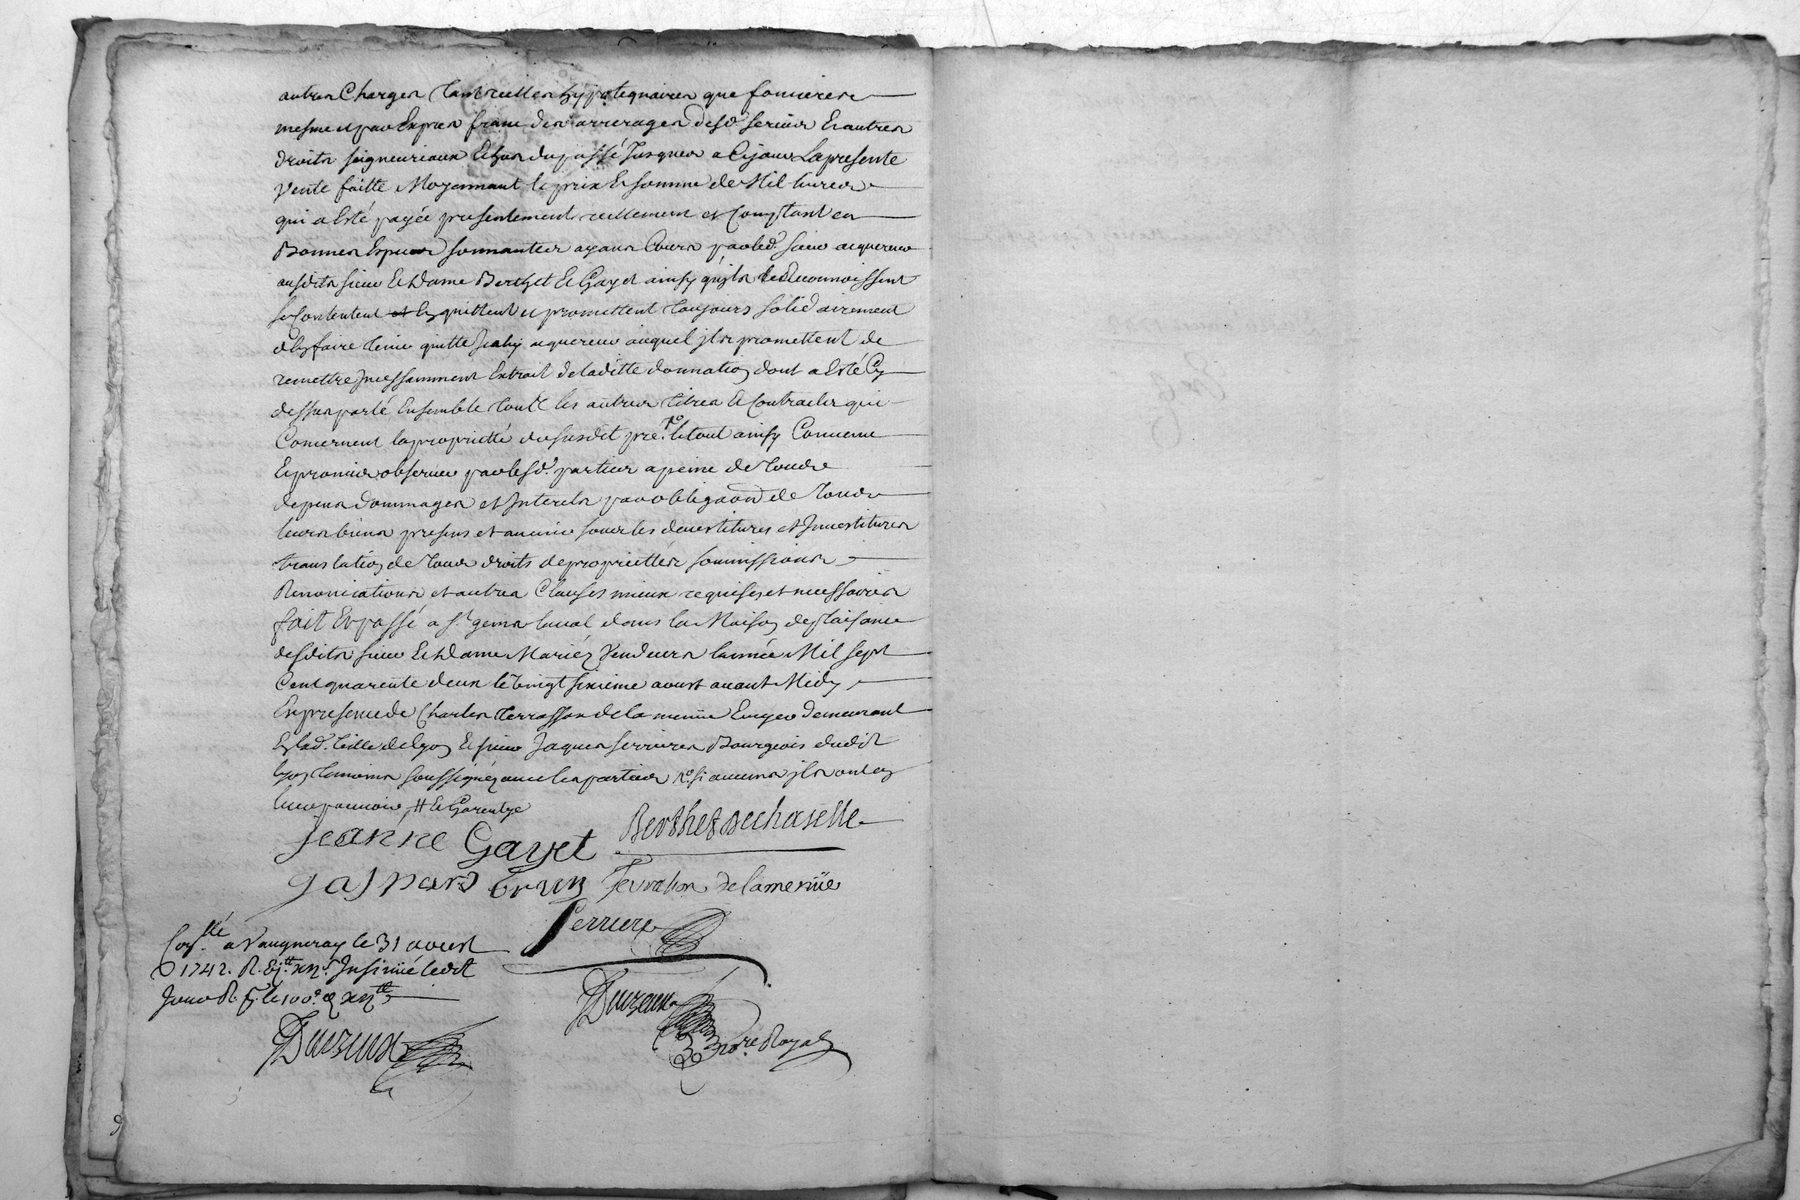 autres Charges tant reelles hypotequaires que foncieres
mesme et par Exprés franc des arrerages desd. servis Et autres
droits seigneuriaux Echus du passé Jusques a Cejour La presente
vente faitte Moyennant le prix Et somme de Mil livres
qui a Esté payée presentement reellement et Comptant en
Bonnes Especes sonnantes ayans Cours par led. sieur acquereur
ausdits sieur Et Dame Berthet Et Gayet ainsy qu'ils le Reconnoissent
se Contentent et l'en quittent et promettent toujours solidairement
de l'en faire tenir quitte acquereur auquel ils promettent de
remettre Incessamment Extrait de laditte donnation dont a Esté Cy
dessus parlé Ensemble tout les autres titres Et Contracts qui
Concernent la proprietté du susdit pré. le tout ainsy Convenu
Et promis observer par lesd. parties a peine de tous
depens dommages et Interets par obligaon de tous
leurs biens presens et avenir sous les devestitures et Investitures
translation de tous droits de propriettés soumissions
Renonciations et autres Clauses mieux requises et necessaires
fait Et passé a St. genis laval dans la Maison de plaisance
desdits sieur Et Dame Mariéz Vendeurs l'année Mil sept
Cent quarente deux le Vingt sixieme aoust avant Midy
En presence de Charles terrasson de la menüe Ecuyer demeurant
En lad. Ville de Lyon Et sieur Jaques ferrieres Bourgeois dudit
Lyon temoins soussignéz avec les parties
Jeanne Gayet Berthet Dechazelle
gaspard brun Terrasson de la menüe
ferriere
Con.llé a Vaugneray le 31 aoust
1742. R. Insinüé ledit
Jour R.
Duvzeux
Duvzeux
No.re Royal